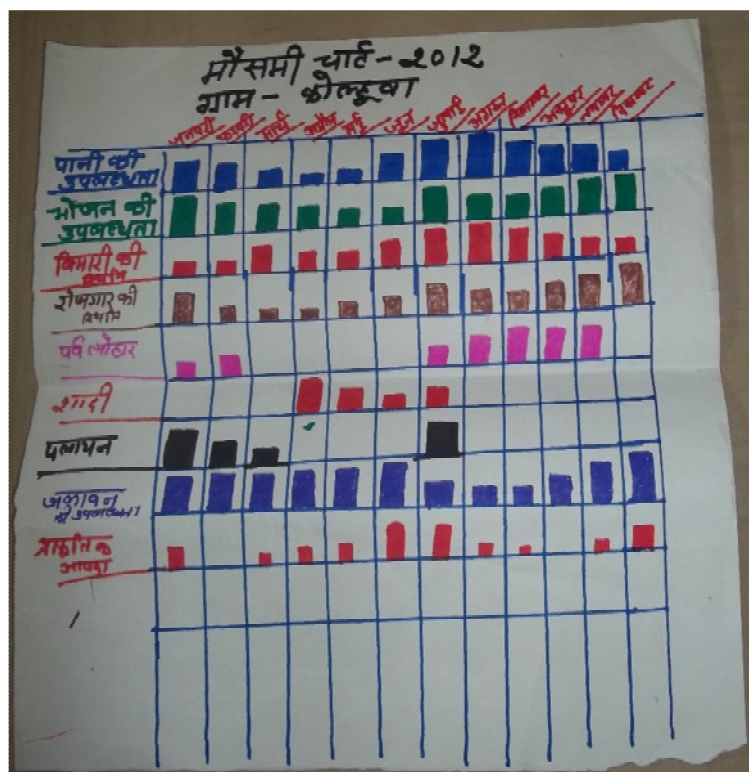 मौसमी चार्ट - 2012
ग्राम - कोल्हूवा
जनवरी फरवरी मार्च अप्रैल मई जून जुलाई अगस्त सितम्बर अक्टूबर नवम्बर दिसम्बर
पानी की
उपलब्धता
भोजन की
उपलब्धता
बिमारी की
स्थिति
रोजगार की
स्थिति
पर्व त्योहार
शादी
पलायन
जलावन
की उपलब्धता
प्राकृतिक
आपदा